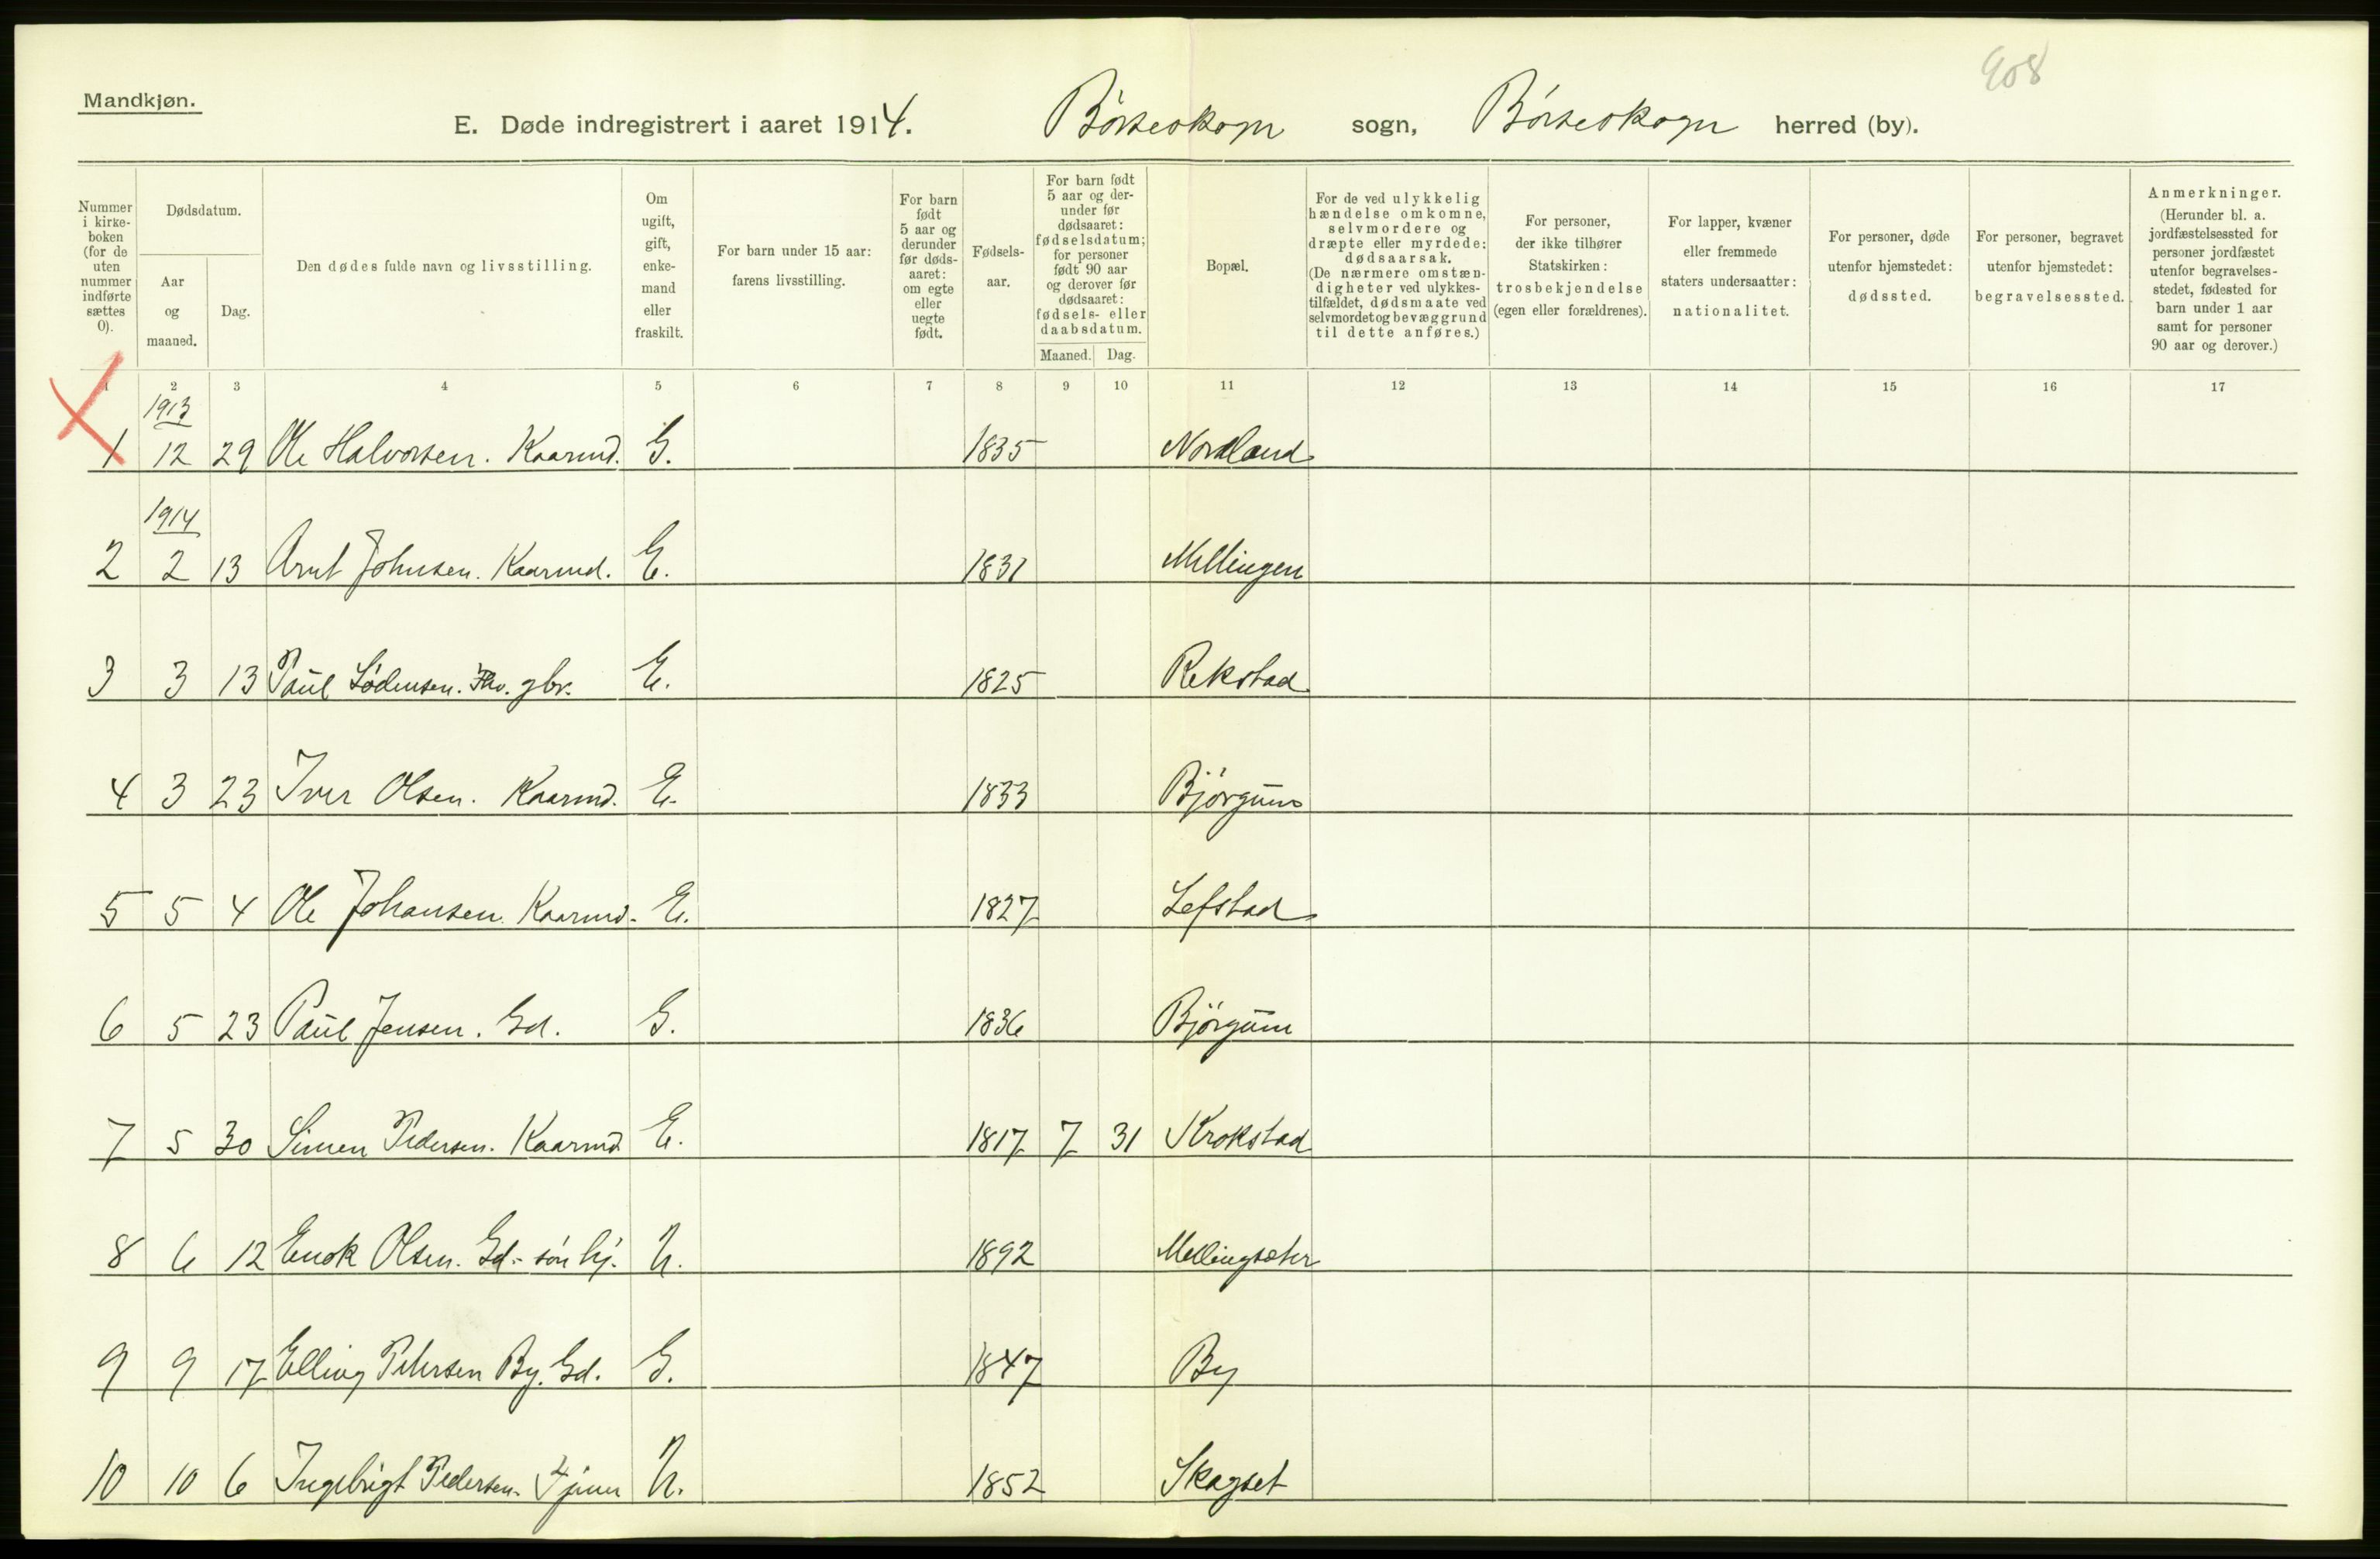 908
Mandkjøn.
E. Døde indregistrert i aaret 1914. Børseskogn sogn, Børseskogn herred (by).
Nummer i kirke-boken (for de uten nummer indførte sættes 0).
Dødsdatum.
Aar og maaned.
Dag.
Den dødes fulde navn og livsstilling.
Om ugift, gift, enke-mand eller fraskilt.
For barn under 15 aar: farens livsstilling.
For barn født 5 aar og derunder før døds-aaret: om egte eller uegte født.
Fødsels-aar.
For barn født 5 aar og der-under før dødsaaret: fødselsdatum; for personer født 90 aar og derover før dødsaaret: fødsels- eller daabsdatum.
Maaned. Dag.
Bopæl.
For de ved ulykkelig hændelse omkomne, selvmordere og dræpte eller myrdede: dødsaarsak. (De nærmere omstæn-digheter ved ulykkes-tilfældet, dødsmaate ved selvmordet og bevæggrund til dette anføres.)
For personer, der ikke tilhører Statskirken: trosbekjendelse (egen eller forældrenes).
For lapper, kvæner eller fremmede staters undersaatter: nationalitet.
For personer, døde utenfor hjemstedet: dødssted.
For personer, begravet utenfor hjemstedet: begravelsessted.
Anmerkninger. (Herunder bl. a. jordfæstelsessted for personer jordfæstet utenfor begravelses-stedet, fødested for barn under 1 aar samt for personer 90 aar og derover.)
1 2 3 4 5 6 7 8 9 10 11 12 13 14 15 16 17
1913
1 12 29 Ole Halvorsen. Kaarmd. G. 1835 Nordland
1914
2 2 13 Arnt Johnsen. Kaarmd. E. 1831 Mellingen
3 3 13 Paul gbr. E. 1825 Rekstad
4 3 23 Iver Olsen. Kaarmd. E. 1833 Bjørgum
5 5 4 Ole Johansen. Kaarmd. E. 1827 Lefstad
6 5 23 Paul Jensen. Gd. G. 1836 Bjørgum
7 5 30 Simen Pedersen. Kaarmd E. 1817 7 31 Krokstad
8 6 12 Enok Olsen. Gd.- søn hj. U. 1892 Mellingsæter
9 9 17 Elling Petersen By. Gd. G. 1847 By
10 10 6 Ingebrigt Pedersen. Tjener U. 1852 Skogset